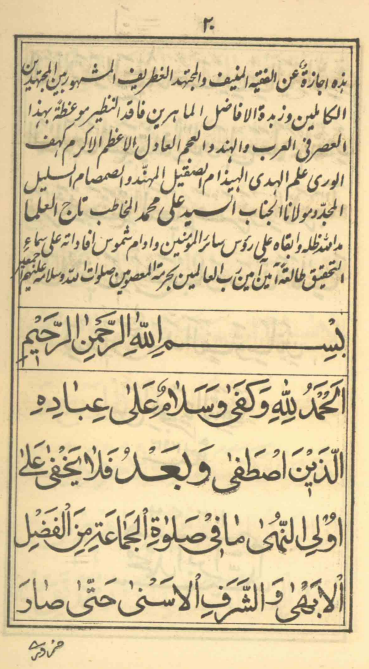 ٢٠
هذه اجازة عن الفقيه المنيف والمجتهد الغطريف المشهور بين المجتهدين
الكاملين وزبدة الافاضل الماهرين فاقد النظير موعظة بهذا
العصر فى العرب والهند والعجم العادل الاعظم الاكرم كهف
الورى علم الهدى الصقيل المهند والصمصام السليل
المجدد مولانا الجناب السيد على محمد المخاطب تاج العلما
مد الله ظله وابقاه على رؤس سائر المؤمنين وادام شموس افاداته على سماء
التحقيق طالعة آمين آمين رب العالمين بحرمة المعصومين صلوات الله وسلامه عليهم اجمعين
بسم الله الرحمن الرحيم
اَلْحَمْدُ لِلّٰهِ وَكَفٰى وَسَلَامٌ عَلٰى عِبَادِهِ
الَّذِيْنَ اصْطَفٰى وَبَعْدُ فَلَا يَخْفٰى عَلٰى
اُولِى النُّهٰى مَا فِىْ صَلٰوةِ الْجَمَاعَةِ مِنَ الْفَضْلِ
الْاَبْهٰى وَالشَّرَفِ الْاَسْنٰى حَتّٰى صَارَ